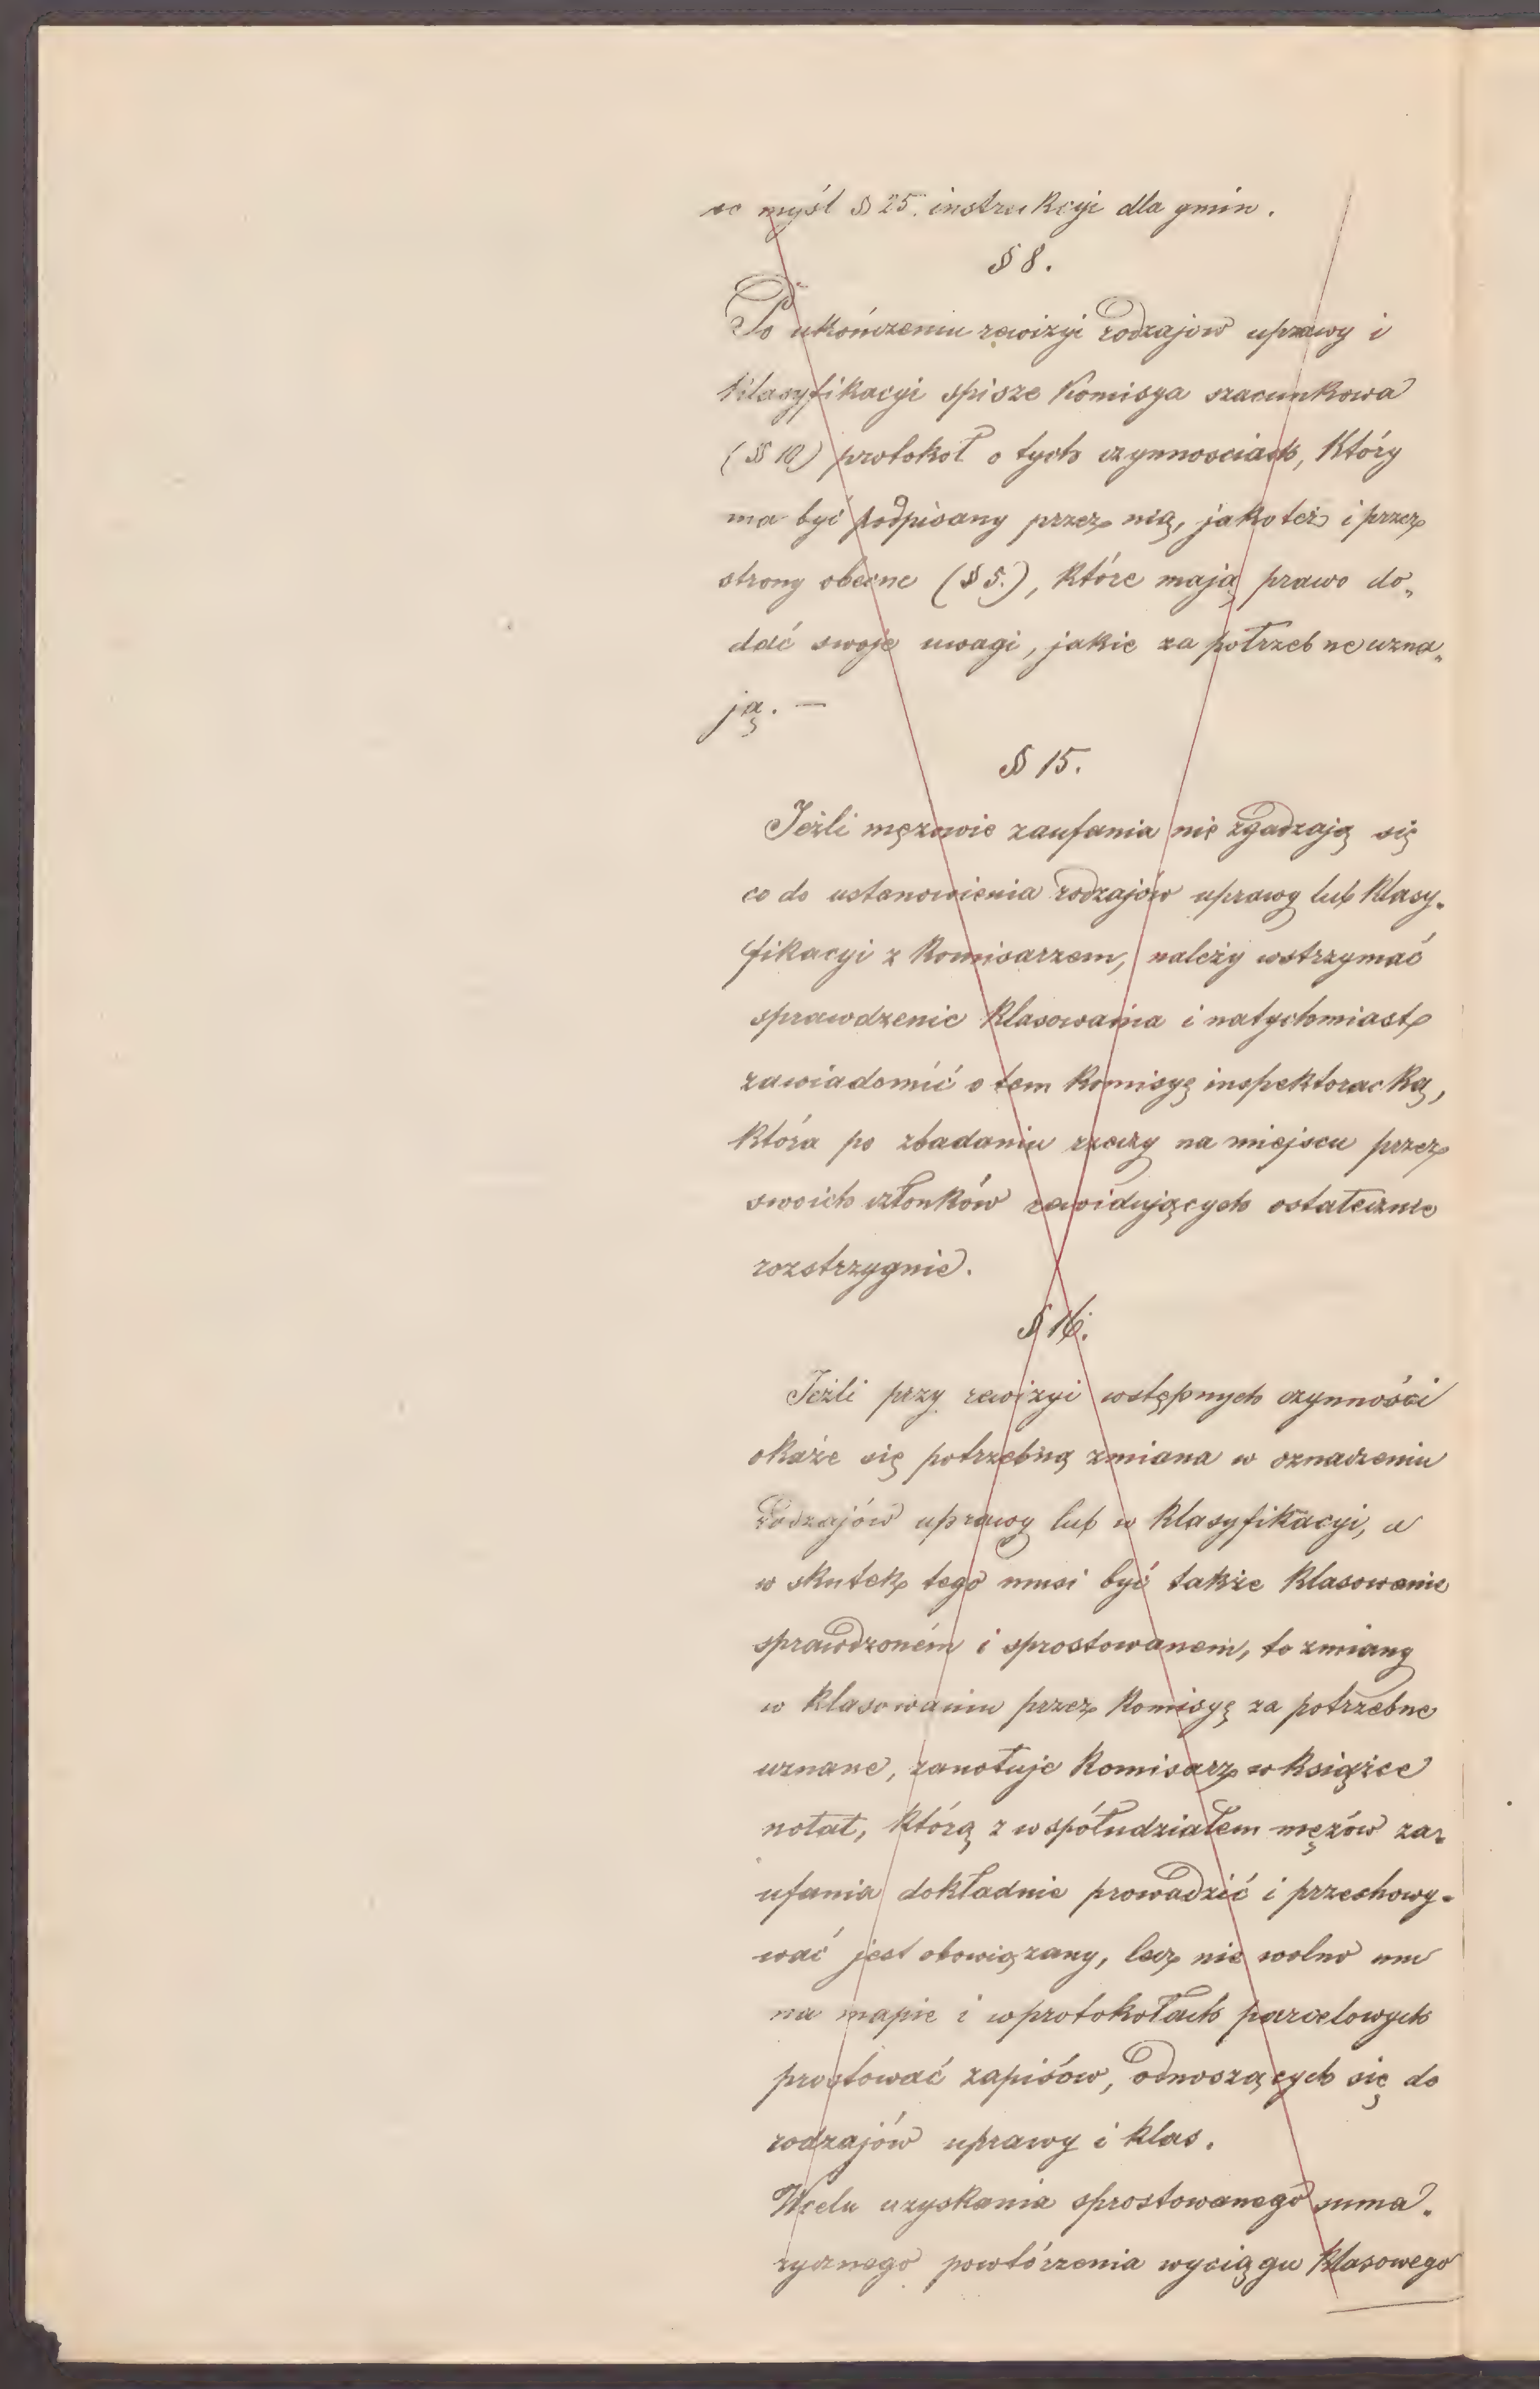 w myśl § 25. instrukcyi dla gmin.
§ 8.
Po ukończeniu rewizyi rodzajow uprawy i
klasyfikacyi spisze Komisya szacunkowa
(§ 10) protokoł o tych czynnosciach, Który
ma być podpisany przez nią, jakoteż i przez
strony obecne (§ 5.), Które mają prawo do„
dać swoje uwagi, jakie za potrzebne uzna„
ją. —
§ 15.
Jeżli mężowie zaufania nie zgadzają się
co do ustanowienia rodzajów uprawy lub Klasy-
fikacyi z Komisarzem, należy wstrzymać
sprawdzenie Klasowania i natychmiast
zawiadomić o tem Komisyę inspektoracką,
Która po zbadaniu rzeczy na miejscu przez
swoich członków rewidujących ostatecznie
rozstrzygnie.
§ 16.
Jeżli przy rewizyi wstępnych czynności
okaże się potrzebną zmiana w oznaczeniu
Rodzajów uprawy lub w Klasyfikacyi, a
w skutek tego musi być także Klasowanie
sprawdzoném i sprostowanem, to zmiany
w Klasowaniu przez Komisyę za potrzebne
uznane, zanotuje Komisarz w Książce
notat, Którą z współudziałem mężów za„
ufania dokładnie prowadzić i przechowy-
wać jest obowiązany, lecz nie wolno mu
na mapie i w protokołach parcelowych
prostować zapisów, odnoszących się do
rodzajów uprawy i Klas.
W celu uzyskania sprostowanego suma-
rycznego powtórzenia wyciągu Klasowego